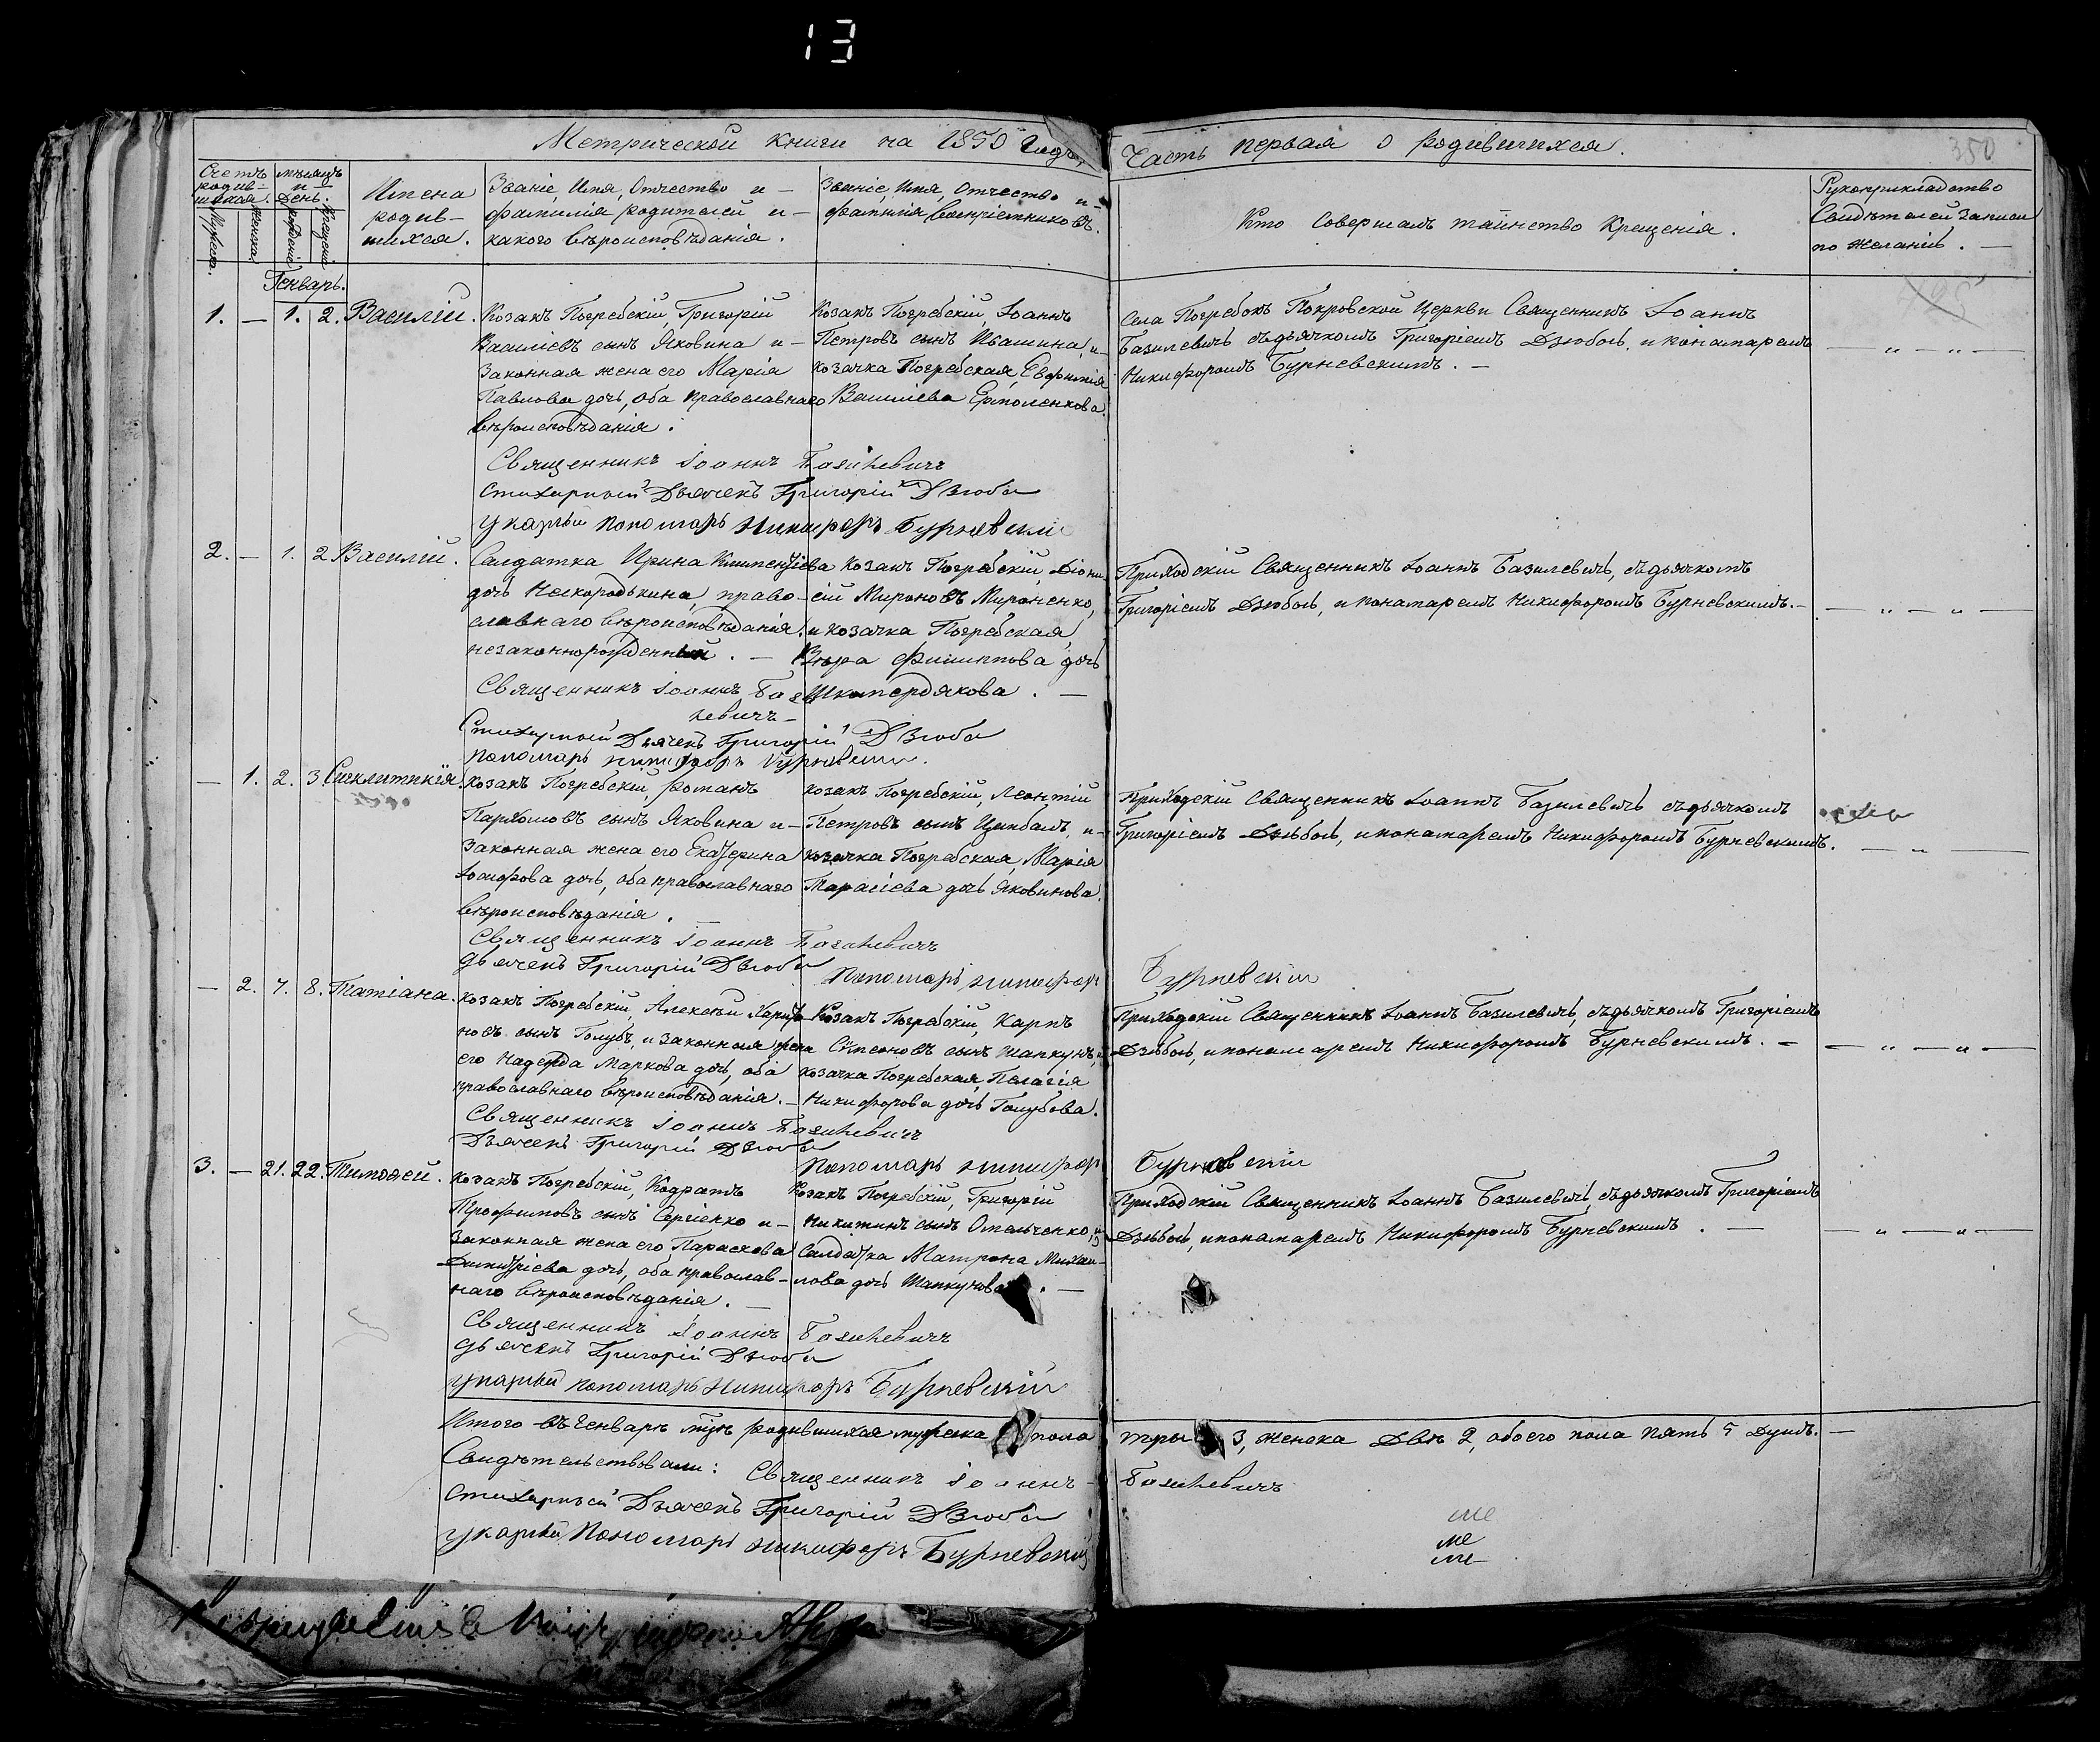 13
Метрической книги на 1850 годъ, Часть первая о родившихся.
350
Счетъ родившихся.
Мужеска.
Женска.
мѣсяцъ и день.
рожденіе
крещеніе
Имена родив-
шихся.
Званіе, Имя, Отчество и —
фамилія родителей и —
какого вѣроисповѣданія.
Званіе, имя, Отчество и —
фамилія воспріемниковъ.
Кто совершалъ таинство крещенія.
Рукоприкладство
Свидѣтелей записи
по желанію. —
Генварь.
1. — 1. 2. Василій.
Козакъ Погребскій, Григорій
Василіевъ сынъ Яковина и —
Законная жена его Марія
Павлова дочь, оба православнаго
вѣроисповѣданія.
Козакъ Погребскій, Іоаннъ
Петровъ сынъ Ивашина, и —
козачка Погребская, Евфимія
Василіева Ермоленкова.
Села Погребокъ Покровской Церкви Священникъ Іоаннъ
Базилевичъ съдьячкомъ Григоріемъ Дзюбою, и понамаремъ
Никифоромъ Бурневскимъ. —
— „ — „ —
Священникъ Іоаннъ Базилевичъ
Стихарный Дьяченъ Григорій Дзюба
указный пономарь Никифоръ Бурневскі
2. — 1. 2 Василій.
Салдатка Ирина Климентіева
дочь Нескородькина, право-
славнаго вѣроисповѣданія,
незаконнорожденный. —
козакъ Погребскій, Діони-
сій Мироновъ Мироненко,
и козачка Погребская,
Вѣра Филиппова дочь
Шкапердякова. —
Приходскій Священникъ Іоаннъ Базилевичъ, съдьячкомъ
Григоріемъ Дзюбою, и понамаремъ Никифоромъ Бурневскимъ. —
— „ — „ —
Священникъ Іоаннъ Бази
левичъ —
Стихарный Дьяченъ Григорій Дзюба
пономарь Никифоръ Бурневскій.
— 1. 2. 3. Сигклитикія.
Козакъ Погребскій, Романъ
Пархомовъ сынъ Яковина и —
Законная жена его Екатерина
Іосифова дочь, оба православнаго
вѣроисповѣданія. —
козакъ Погребскій, Леонтій
Петровъ сынъ Цимбалъ, и —
козачка Погребская, Марія
Тарасіева дочь Яковинова.
Приходскій Священникъ Іоаннъ Базилевичъ съдьячкомъ
Григоріемъ Дзюбою, и понамаремъ Никифоромъ Бурневскимъ.
— „ —
Священникъ Іоаннъ Базилевичъ
дьяченъ Григорій Дзюба
Пономарь Никифоръ Бурневскій
— 2. 7. 8. Татіана.
Козакъ Погребскій, Алексѣй Харито-
новъ сынъ Голубъ, и законная жена
его Надежда Маркова дочь, оба
православнаго вѣроисповѣданія. —
Козакъ Погребскій, Карпъ
Симеоновъ сынъ Шапкунъ, и
козачка Погребская, Пелагія
Никифорова дочь Голубова.
Приходскій Священникъ Іоаннъ Базилевичъ, съдьячкомъ Григоріемъ
Дзюбою, и понамаремъ Никифоромъ Бурневскимъ. —
— „ — „ —
Священникъ Іоаннъ Базилевичъ
Дьяченъ Григорій Дзюба
Пономарь Никифоръ Бурневскій
3. — 21. 22. Тимоѳей.
Козакъ Погребскій, Кодратъ
Трофимовъ сынъ Сергіенко и —
Законная жена его Параскова
Димитріева дочь, оба православ-
наго вѣроисповѣданія. —
Козакъ Погребскій, Григорій
Никитинъ сынъ Омельченко, и
Салдатка Матрона Михаи-
лова дочь Шапкунова. —
Приходскій Священникъ Іоаннъ Базилевичъ, съдьячкомъ Григоріемъ
Дзюбою, и понамаремъ Никифоромъ Бурневскимъ. —
— „ — „ —
Священникъ Іоаннъ Базилевичъ
дьяченъ Григорій Дзюба
указный пономарь Никифоръ Бурневскій
Итого въ Генварѣ родившихся мужеска пола три 3, женска двѣ 2, обоего пола пять 5 душъ. —
Свидѣтельствовали: Священникъ Іоаннъ Базилевичъ
Стихарный Дьяченъ Григорій Дзюба
указный Пономарь Никифоръ Бурневскій